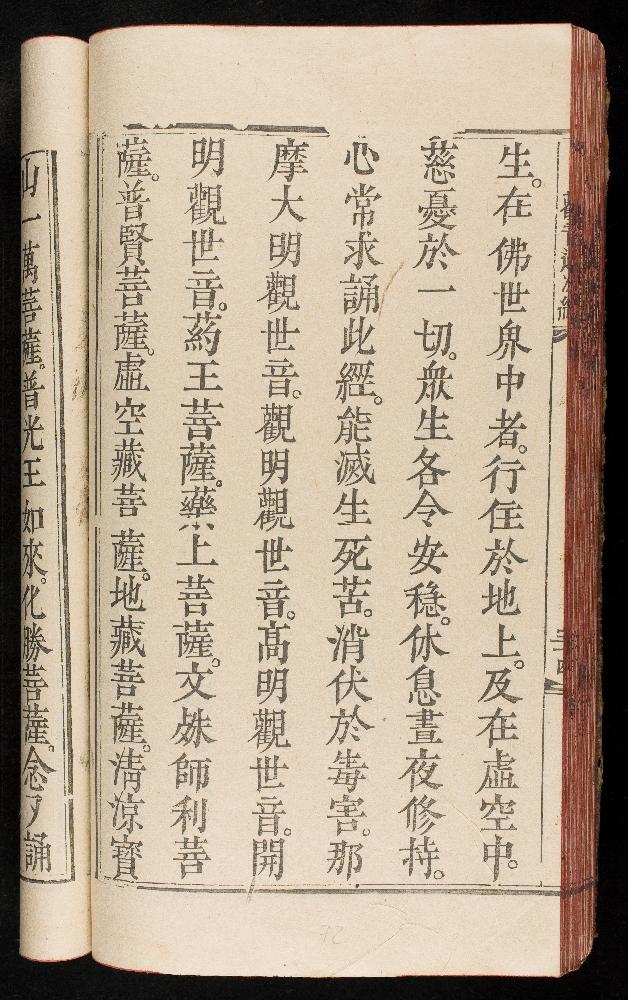 生。在佛世界中者。行住於地上。及在虛空中。
慈憂於一切。衆生各令安穩。休息晝夜修持。
心常求誦此經。能滅生死苦。消伏於毒害。那
摩大明觀世音。觀明觀世音。高明觀世音。開
明觀世音。葯王菩薩。藥上菩薩。文殊師利菩
薩。普賢菩薩。虛空藏菩薩。地藏菩薩。清涼寶
山一萬菩薩。普光王如來。化勝菩薩。念
誦
72